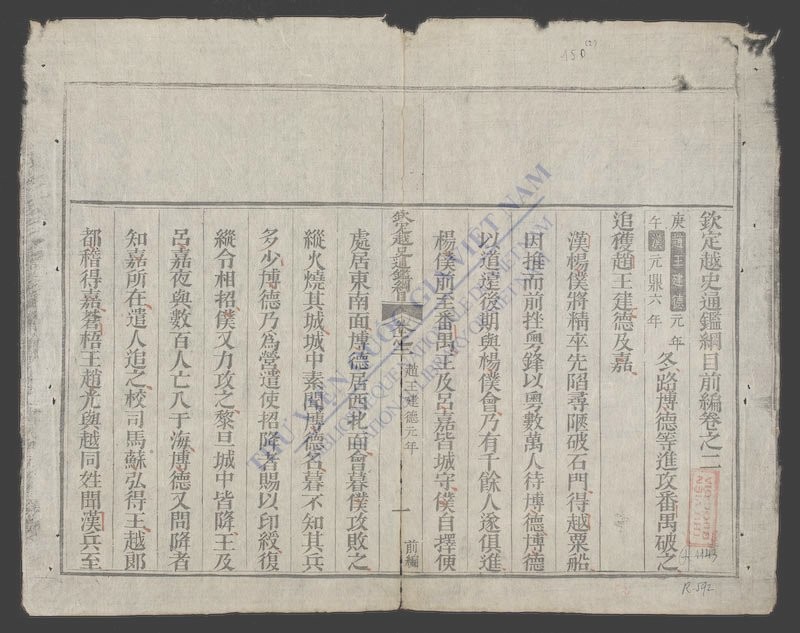 欽定越史通鑑綱目前編卷之二
庚趙王建德元年
午漢元鼎六年
冬路博德等進攻番禺破之
追獲趙王建德及嘉
漢楊僕將精卒先陷尋陿破石門得越粟船
因推而前挫粵鋒以粵數萬人待博德博德
以道遠後期與楊僕會乃有千餘人遂俱進
楊僕前至番禺王及呂嘉皆城守僕自擇便
欽定越史通鑑綱目
卷之二
趙王建德元年
一
前編
處居東南面博德居西北面會暮僕攻敗之
縱火燒其城城中素聞博德名暮不知其兵
多少博德乃為營遣使招降者賜以印綬復
縱令相招僕又力攻之黎旦城中皆降王及
呂嘉夜與數百人亡入于海博德又問降者
知嘉所在遣人追之校司馬蘇弘得王越郎
都稽得嘉蒼梧王趙光與越同姓聞漢兵至
150
(2)
THƯ VIỆN QUỐC GIA VIỆT NAM
BIBLIOTHÈQUE NATIONALE DU VIETNAM
NATIONAL LIBRARY OF VIETNAM
R.592